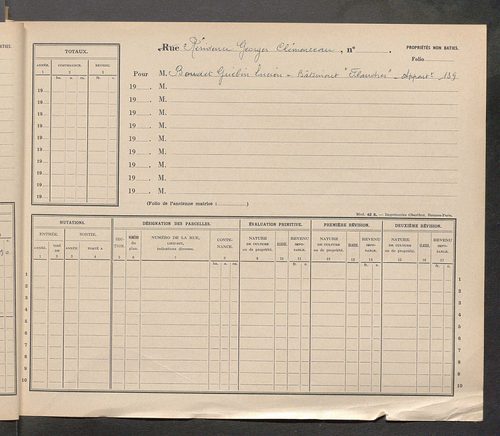 TOTAUX.
ANNÉE. CONTENANCE. REVENU.
1 2 3
ha. a. ca. fr. c.
19
19
19
19
19
19
19
19
Rue Résidence Georges Clémenceau, n°
PROPRIÉTÉS NON BATIES.
Folio
Pour M. Lucien - Bâtiment "Flandres" - Appart t 139
19 M.
19 M.
19 M.
19 M.
19 M.
19 M.
19 M.
(Folio de l'ancienne matrice : )
Mod. 42 R. — Imprimeries Oberthur, Rennes-Paris.
MUTATIONS. DÉSIGNATION DES PARCELLES. ÉVALUATION PRIMITIVE. PREMIÈRE RÉVISION. DEUXIÈME RÉVISION.
ENTRÉE. SORTIE. SECTION. NUMÉRO du plan. NUMÉRO DE LA RUE, LIEUDIT, indications diverses. CONTENANCE. NATURE DE CULTURE ou de propriété. CLASSE. REVENU IMPOSABLE. NATURE DE CULTURE ou de propriété. CLASSE. REVENU IMPOSABLE. NATURE DE CULTURE ou de propriété. CLASSE. REVENU IMPOSABLE.
ANNÉE. TIRÉ DE ANNÉE PORTÉ A
1 2 3 4 5 6 7 8 9 10 11 12 13 14 15 16 17
ha. a. ca. fr. c. fr. c. fr. c.
1 1
2 2
3 3
4 4
5 5
6 6
7 7
8 8
9 9
10 10